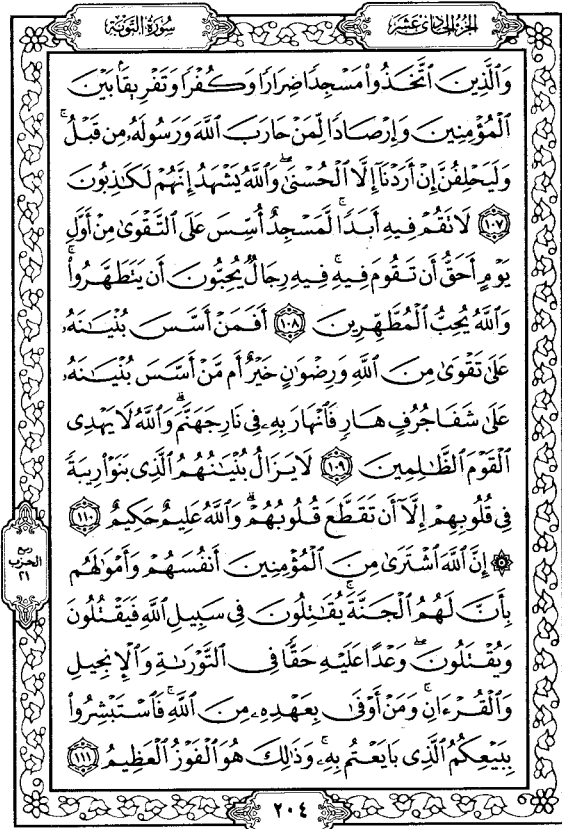 الجزء الحادي عشر
سورة التوبة
وَٱلَّذِينَ ٱتَّخَذُوا۟ مَسْجِدًا ضِرَارًا وَكُفْرًا وَتَفْرِيقًۢا بَيْنَ
ٱلْمُؤْمِنِينَ وَإِرْصَادًا لِّمَنْ حَارَبَ ٱللَّهَ وَرَسُولَهُۥ مِن قَبْلُ ۚ
وَلَيَحْلِفُنَّ إِنْ أَرَدْنَآ إِلَّا ٱلْحُسْنَىٰ ۖ وَٱللَّهُ يَشْهَدُ إِنَّهُمْ لَكَٰذِبُونَ
١٠٧ لَا تَقُمْ فِيهِ أَبَدًا ۚ لَّمَسْجِدٌ أُسِّسَ عَلَى ٱلتَّقْوَىٰ مِنْ أَوَّلِ
يَوْمٍ أَحَقُّ أَن تَقُومَ فِيهِ ۚ فِيهِ رِجَالٌ يُحِبُّونَ أَن يَتَطَهَّرُوا۟ ۚ
وَٱللَّهُ يُحِبُّ ٱلْمُطَّهِّرِينَ ١٠٨ أَفَمَنْ أَسَّسَ بُنْيَٰنَهُۥ
عَلَىٰ تَقْوَىٰ مِنَ ٱللَّهِ وَرِضْوَٰنٍ خَيْرٌ أَم مَّنْ أَسَّسَ بُنْيَٰنَهُۥ
عَلَىٰ شَفَا جُرُفٍ هَارٍ فَٱنْهَارَ بِهِۦ فِى نَارِ جَهَنَّمَ ۗ وَٱللَّهُ لَا يَهْدِى
ٱلْقَوْمَ ٱلظَّٰلِمِينَ ١٠٩ لَا يَزَالُ بُنْيَٰنُهُمُ ٱلَّذِى بَنَوْا۟ رِيبَةً
فِى قُلُوبِهِمْ إِلَّآ أَن تَقَطَّعَ قُلُوبُهُمْ ۗ وَٱللَّهُ عَلِيمٌ حَكِيمٌ ١١٠
۞ إِنَّ ٱللَّهَ ٱشْتَرَىٰ مِنَ ٱلْمُؤْمِنِينَ أَنفُسَهُمْ وَأَمْوَٰلَهُم
بِأَنَّ لَهُمُ ٱلْجَنَّةَ ۚ يُقَٰتِلُونَ فِى سَبِيلِ ٱللَّهِ فَيَقْتُلُونَ
وَيُقْتَلُونَ ۖ وَعْدًا عَلَيْهِ حَقًّا فِى ٱلتَّوْرَىٰةِ وَٱلْإِنجِيلِ
وَٱلْقُرْءَانِ ۚ وَمَنْ أَوْفَىٰ بِعَهْدِهِۦ مِنَ ٱللَّهِ ۚ فَٱسْتَبْشِرُوا۟
بِبَيْعِكُمُ ٱلَّذِى بَايَعْتُم بِهِۦ ۚ وَذَٰلِكَ هُوَ ٱلْفَوْزُ ٱلْعَظِيمُ ١١١
ربع
الحزب
٢١
٢٠٤